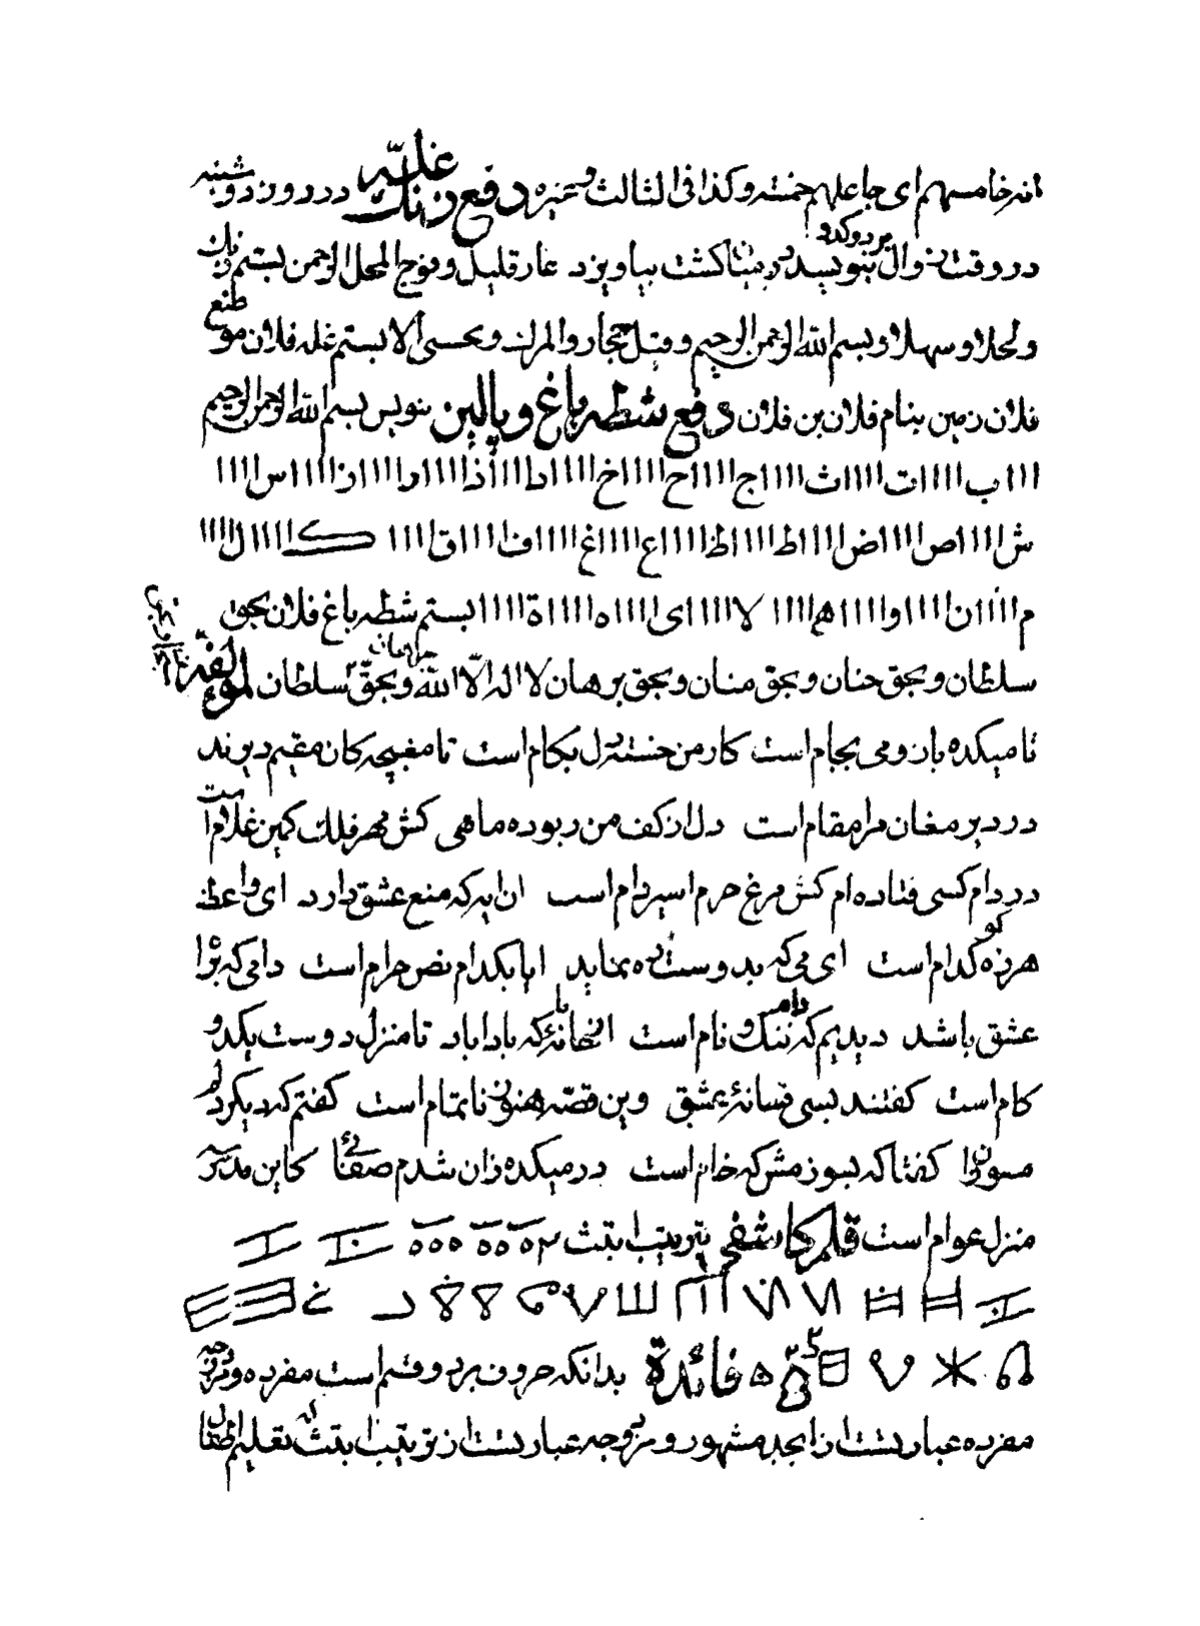 انه خامسهم ای جاعلهم خمسة وکذا فی الثالث وغیره دفع زنک غله در روز دوشنبه
در وقت زوال بنویسد در میان کشت بیاویزد عار قلیل وبوج المحل الرحمن بستم زبان
ولحلا وسهلا وبسم الله الرحمن الرحیم و حجار والمرلد وعسی الا بستم غله فلان موضع
فلان زمین بنام فلان بن فلان دفع شطه باغ وپالیز بنویس بسم الله الرحمن الرحیم
ااا ب اااا ت اااا ث اااا ج اااا ح اااا خ اااا د اااا ذ اااا ر اااا ز اااا س اااا
ش اااا ص اااا ض اااا ط اااا ظ اااا ع اااا غ اااا ف اااا ق اااا ک اااا ل اااا
م اااا ن اااا و اااا ه اااا لا اااا ی اااا ه اااا ة اااا بستم شطه باغ فلان بحق
سلطان وبحق حنان وبحق منان وبحق برهان لا اله الا الله وبحق سلطان لمؤلفه
تا میکده باز ومی بجام است کار من خسته دل بکام است تا مغبچه کان مقیم دیرند
در دیر مغان مرا مقام است دل از کف من ربوده ماهی کش مهر فلک کمین غلام است
در دام کسی فتاده ام کش مرغ حرم اسیر دام است ان به که منع عشق دارد ای واعظ
هرزه کو کدام است ای می که بدوست ره نماید ایا بکدام نص حرام است دامی که برا
عشق باشد دیدیم که ننک و نام است انخانه که بادا باد تا منزل دوست یکدو
کام است کفتند بسی فسانهٔ عشق وین قصه هنوز ناتمام است کفتم که دیکر دلم
مسوزان کفتا که بسوزمش که خام است در میکده زان شدم صفائی کاین مدرسه
منزل عوام است قلم کاشفی بترتیب ابتث
فائدة بدانکه حروف بر دو قسم است مفرده ومزدوجه
مفرده عبارتست از ابجد مشهور ومزدوجه عبارتست از ترتیب ابتث که تعلیم اطفال